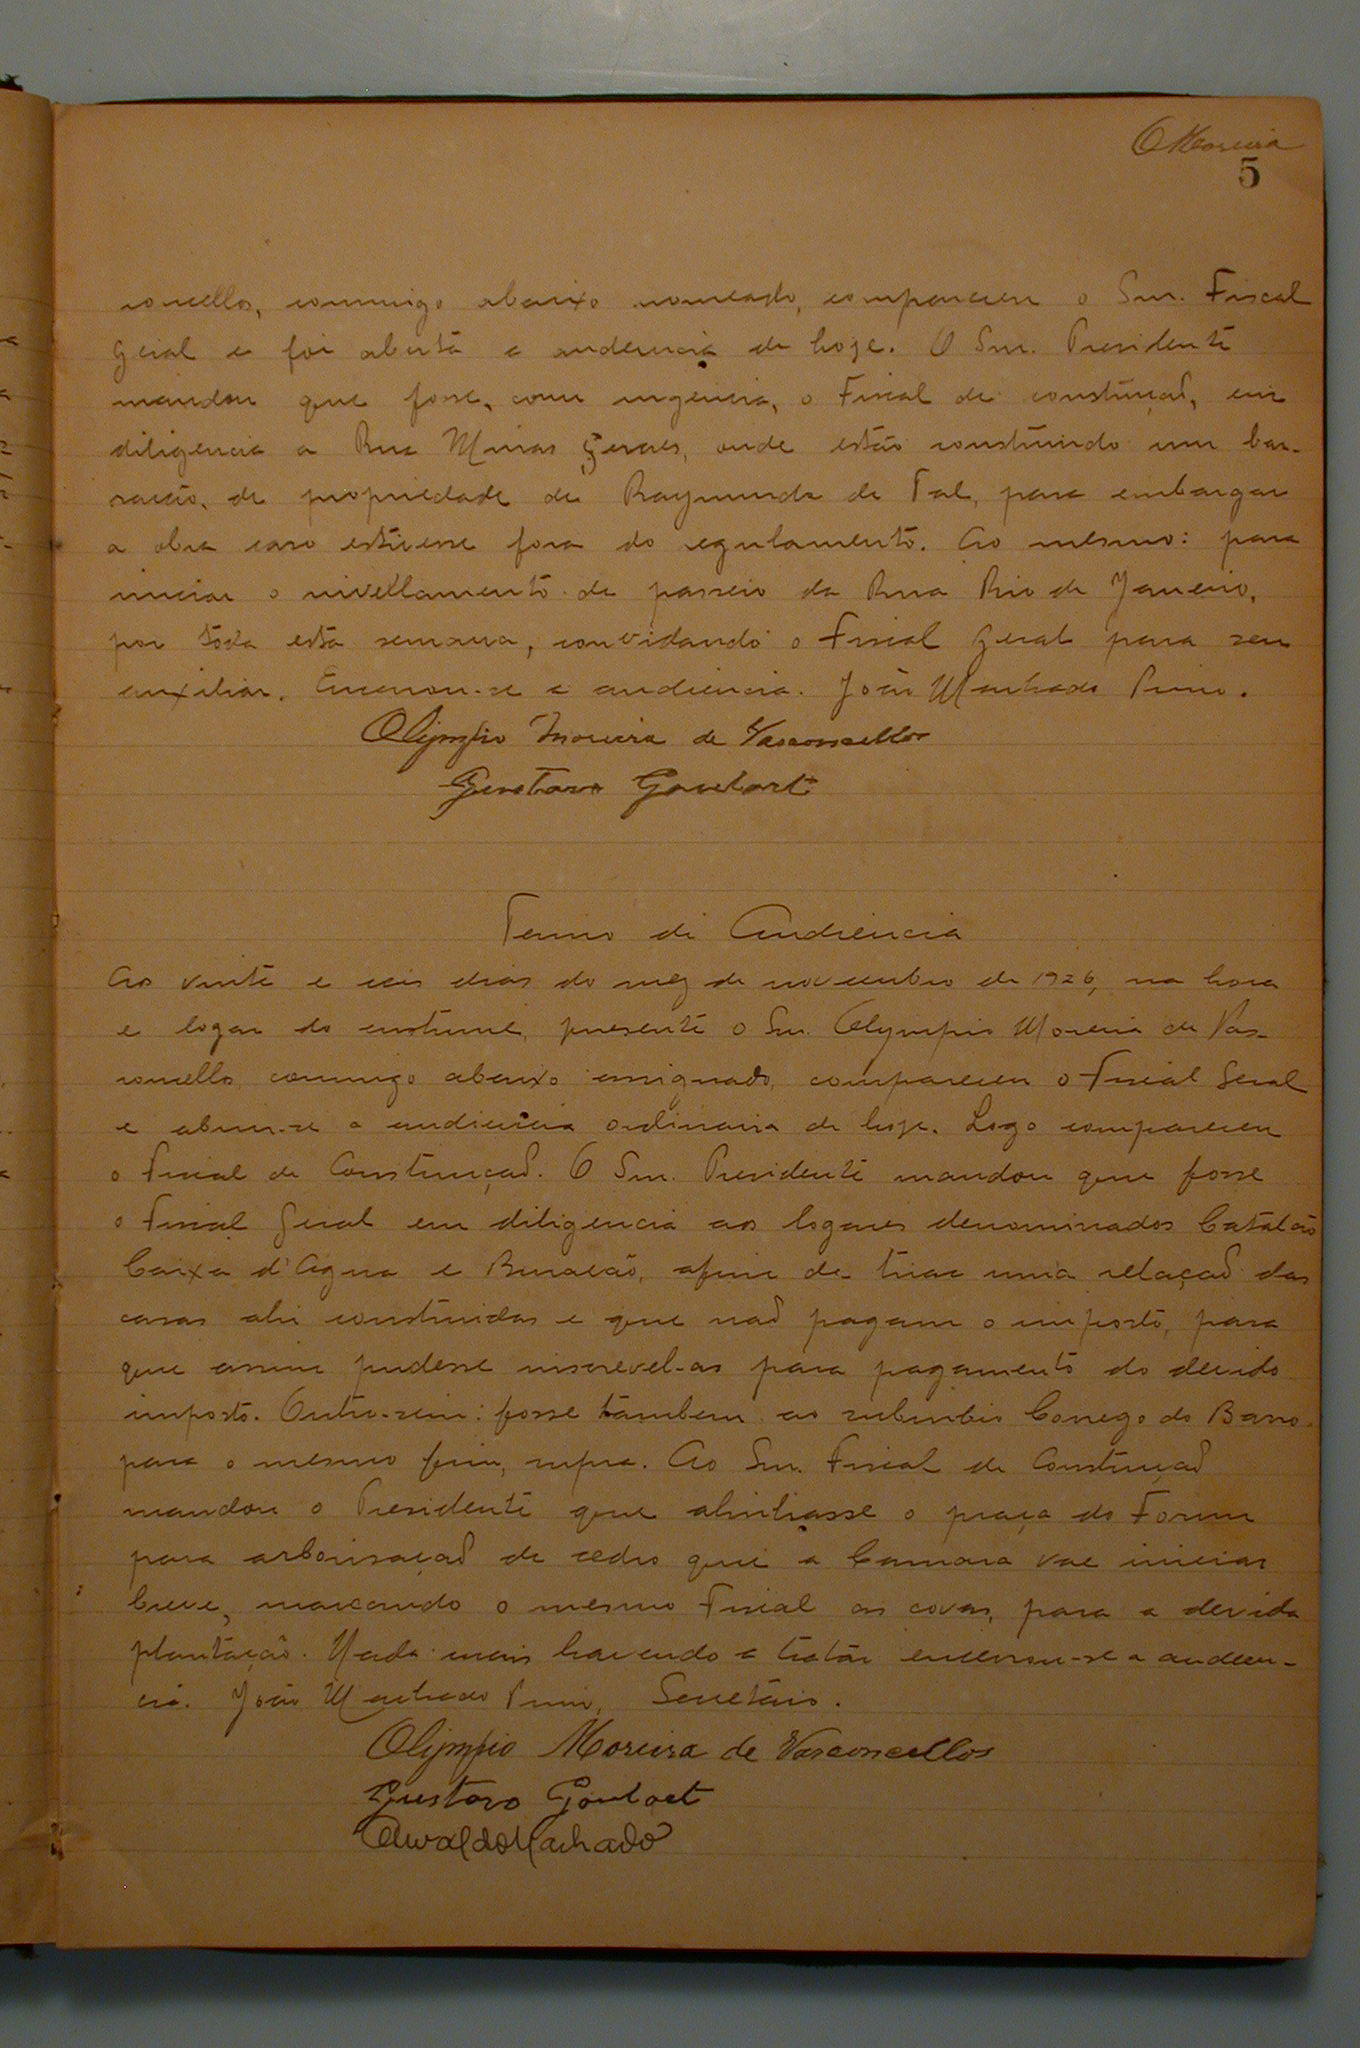 OMoreira
5
concellos, commigo abaixo nomeado, compareceu o Snr. Fiscal
Geral e foi aberta a audiencia de hoje. O Snr. Presidente
mandou que fosse, com urgencia, o Fiscal de construçaõ, em
diligencia a Rua Minas Geraes, onde estão construindo um bar-
racão, de propriedade de Raymundo de Tal, para embargar
a obra caso estivesse fora do regulamento. Ao mesmo: para
iniciar o nivellamento de passeio da Rua Rio de Janeiro,
por toda esta semana, convidando o Fiscal Geral para seu
auxiliar. Encerrou-se a audiencia. João Machado
Olijmpio Moreira de Vasconcellos
Gustavo Goulart
Termo de Audiencia
Aos vinte e seis dias do mez de novembro de 1926, na hora
e logar do custume, presente o Snr. Olympio Moreira de Vas-
concellos commigo abaixo assignado, compareceu o Fiscal Geral
e abriu-se a audiencia ordinaria de hoje. Logo compareceu
o Fiscal de Construçaõ. O Snr. Presidente mandou que fosse
o Fiscal Geral em diligencia aos logares denominados Catalão
Caixa d'Agua e Buracão, afim de tirar uma relaçaõ das
casas ahi construidas e que naõ pagam o imposto, para
que assim pudesse inscrevel-as para pagamento do devido
imposto. Outro-sim: fosse tambem ao suburbio Corrego do Barro
para o mesmo fim, supra. Ao Snr. Fiscal de Construçaõ
mandou o Presidente que o praça do Forum
para arborisaçaõ de cedro que a Camara vae iniciar
breve, marcando o mesmo Fiscal as covas, para a devida
plantação. Nada mais havendo a tratar encerrou-se a audien-
cia. João Machado Secretário.
Olijmpio Moreira de Vasconcellos
Gustavo Goulart
Machado